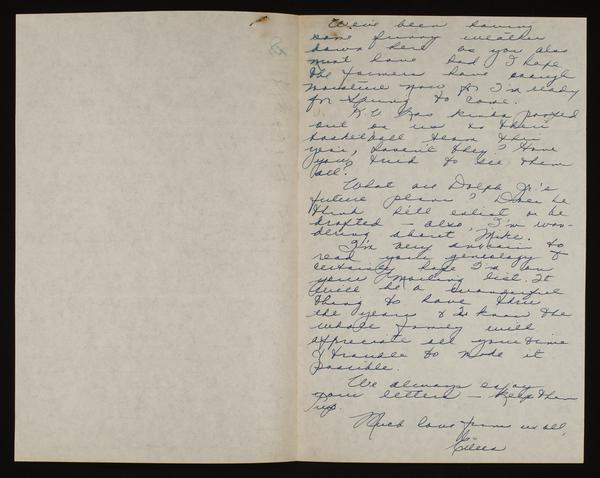 We've been having
some funny weather
down here as you also
must have had I hope
the farmers have enough
moisture now for I'm ready
for Spring to come.
K.U. has kinda pooped
out on us in their
basketball team this
year, haven't they? Have
you tried to see them
all?
What are Dolph Jr.'s
future plans? Does he
think he'll enlist or be
drafted – also, I'm won-
dering about Mike.
I'm very anxious to
read your genealogy &
certainly hope I'm on
your mailing list. It
will be a wonderful
thing to have thru
the years & I know the
whole family will
appreciate all your time
& trouble to make it
possible.
We always enjoy
your letters – keep them
up.
Much love from us all,